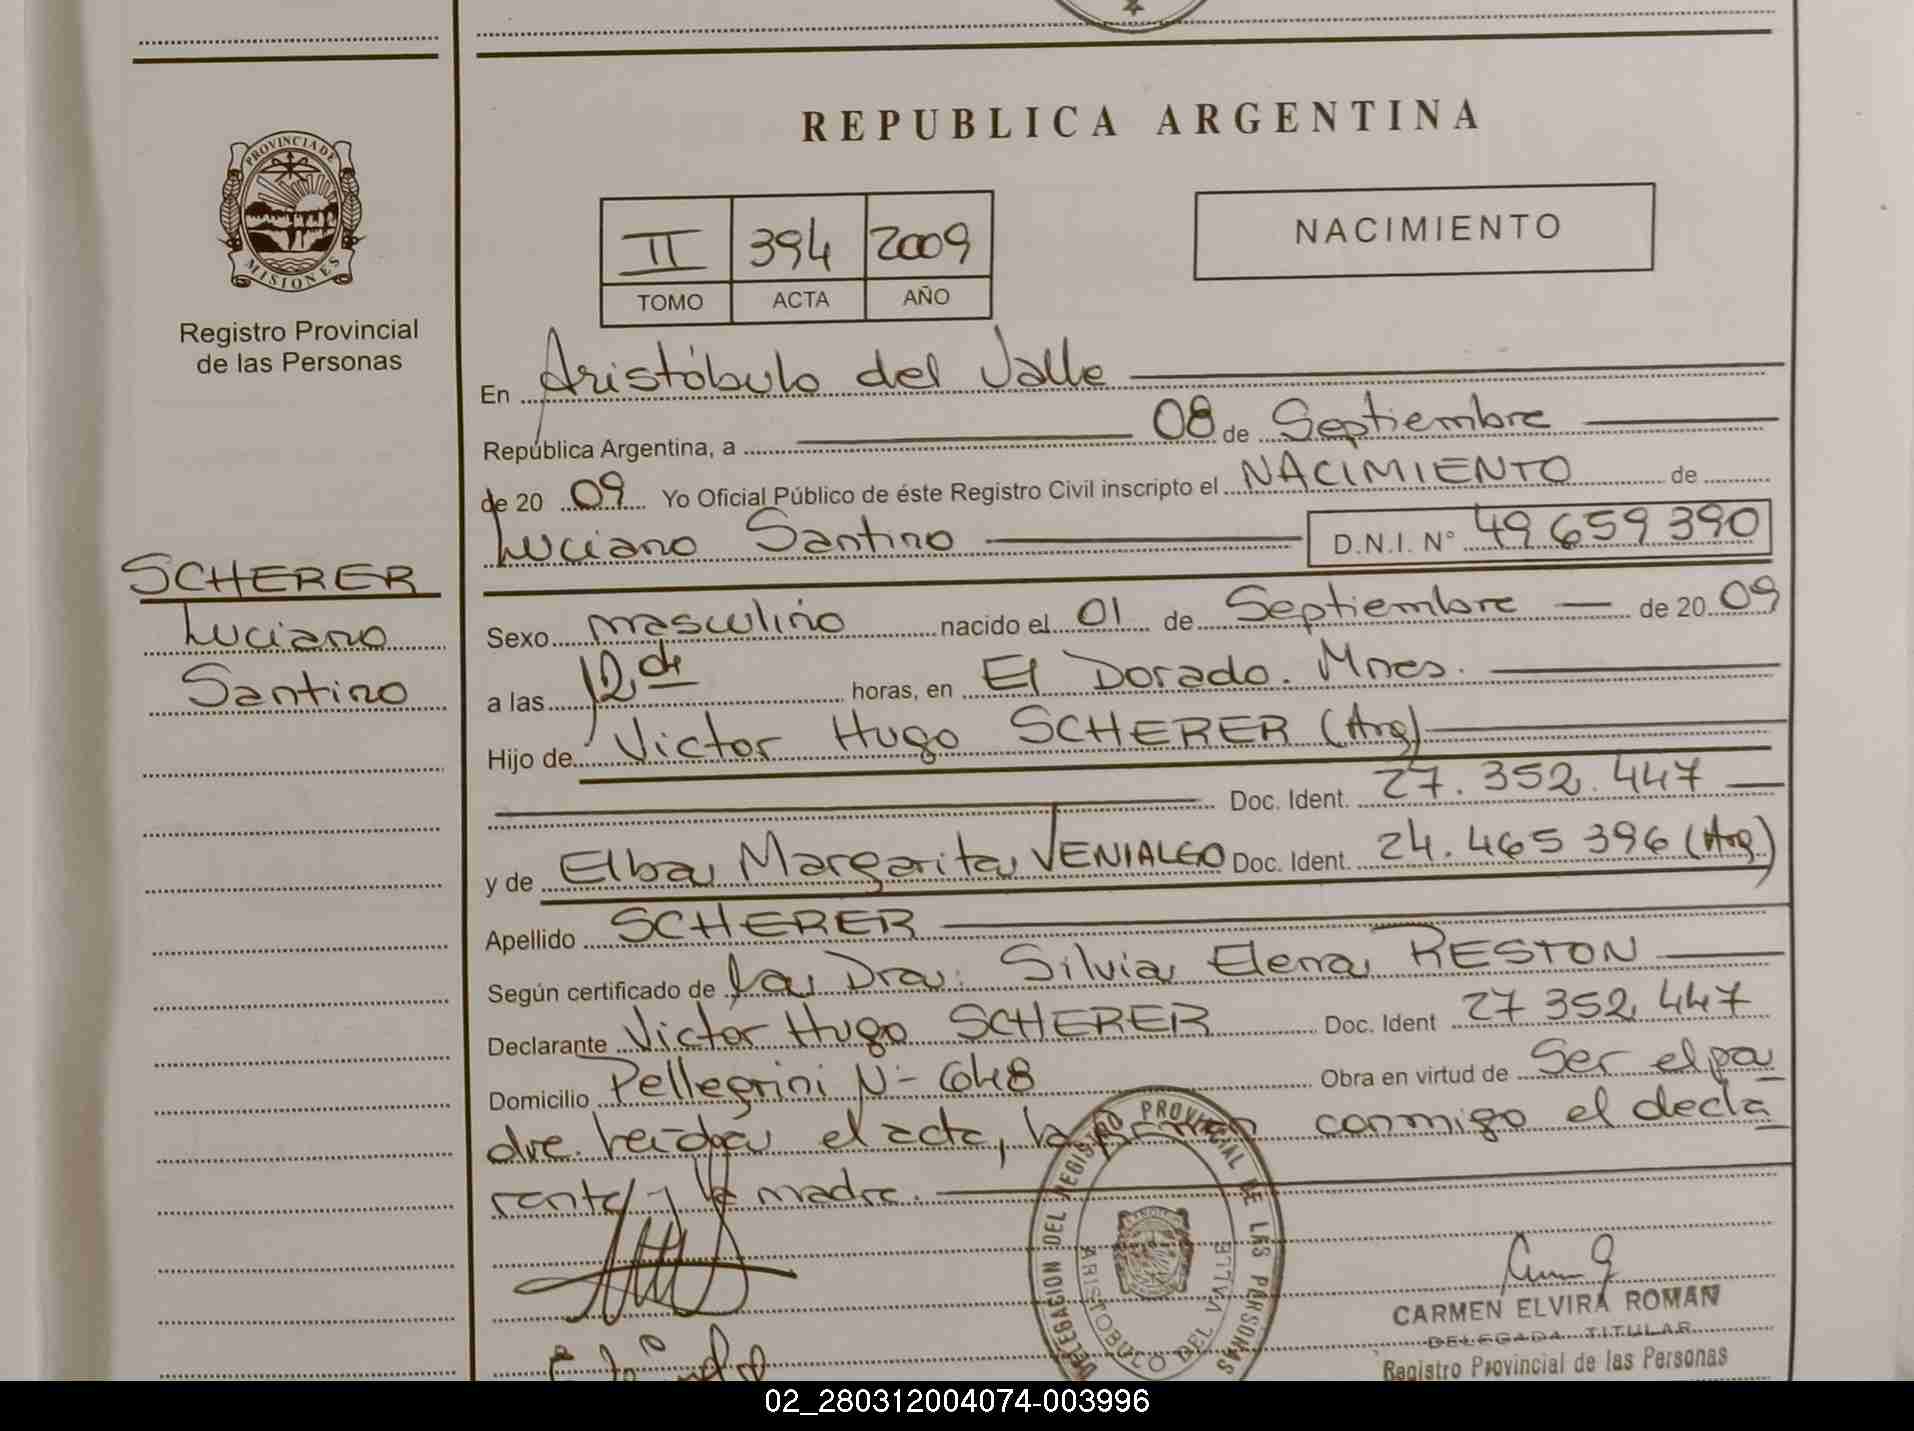 REPUBLICA ARGENTINA
PROVINCIA DE
MISIONES
Registro Provincial
de las Personas
II 394 2009
TOMO ACTA AÑO
NACIMIENTO
En Aristóbulo del Valle
República Argentina, a 08 de Septiembre
de 2009 Yo Oficial Público de éste Registro Civil inscripto el NACIMIENTO de
Luciano Santino D.N.I. N° 49 659 390
SCHERER
Luciano
Santino
Sexo masculino nacido el 01 de Septiembre de 2009
a las 12 horas, en El Dorado. Mnes.
Hijo de Victor Hugo SCHERER (Arg)
Doc. Ident. 27.352.447
y de Elba Margarita VENIALGO Doc. Ident. 24.465 396 (Arg)
Apellido SCHERER
Según certificado de la Dra. Silvia Elena RESTON
Declarante Victor Hugo SCHERER Doc. Ident 27 352 447
Domicilio Pellegrini N- 648 Obra en virtud de Ser el pa
dre. Leida el acta, la firman conmigo el decla
rante y la madre.
DELEGACION DEL REGISTRO PROVINCIAL DE LAS PERSONAS
ARISTOBULO DEL VALLE
CARMEN ELVIRA ROMAN
DELEGADA TITULAR
Registro Provincial de las Personas
02_280312004074-003996